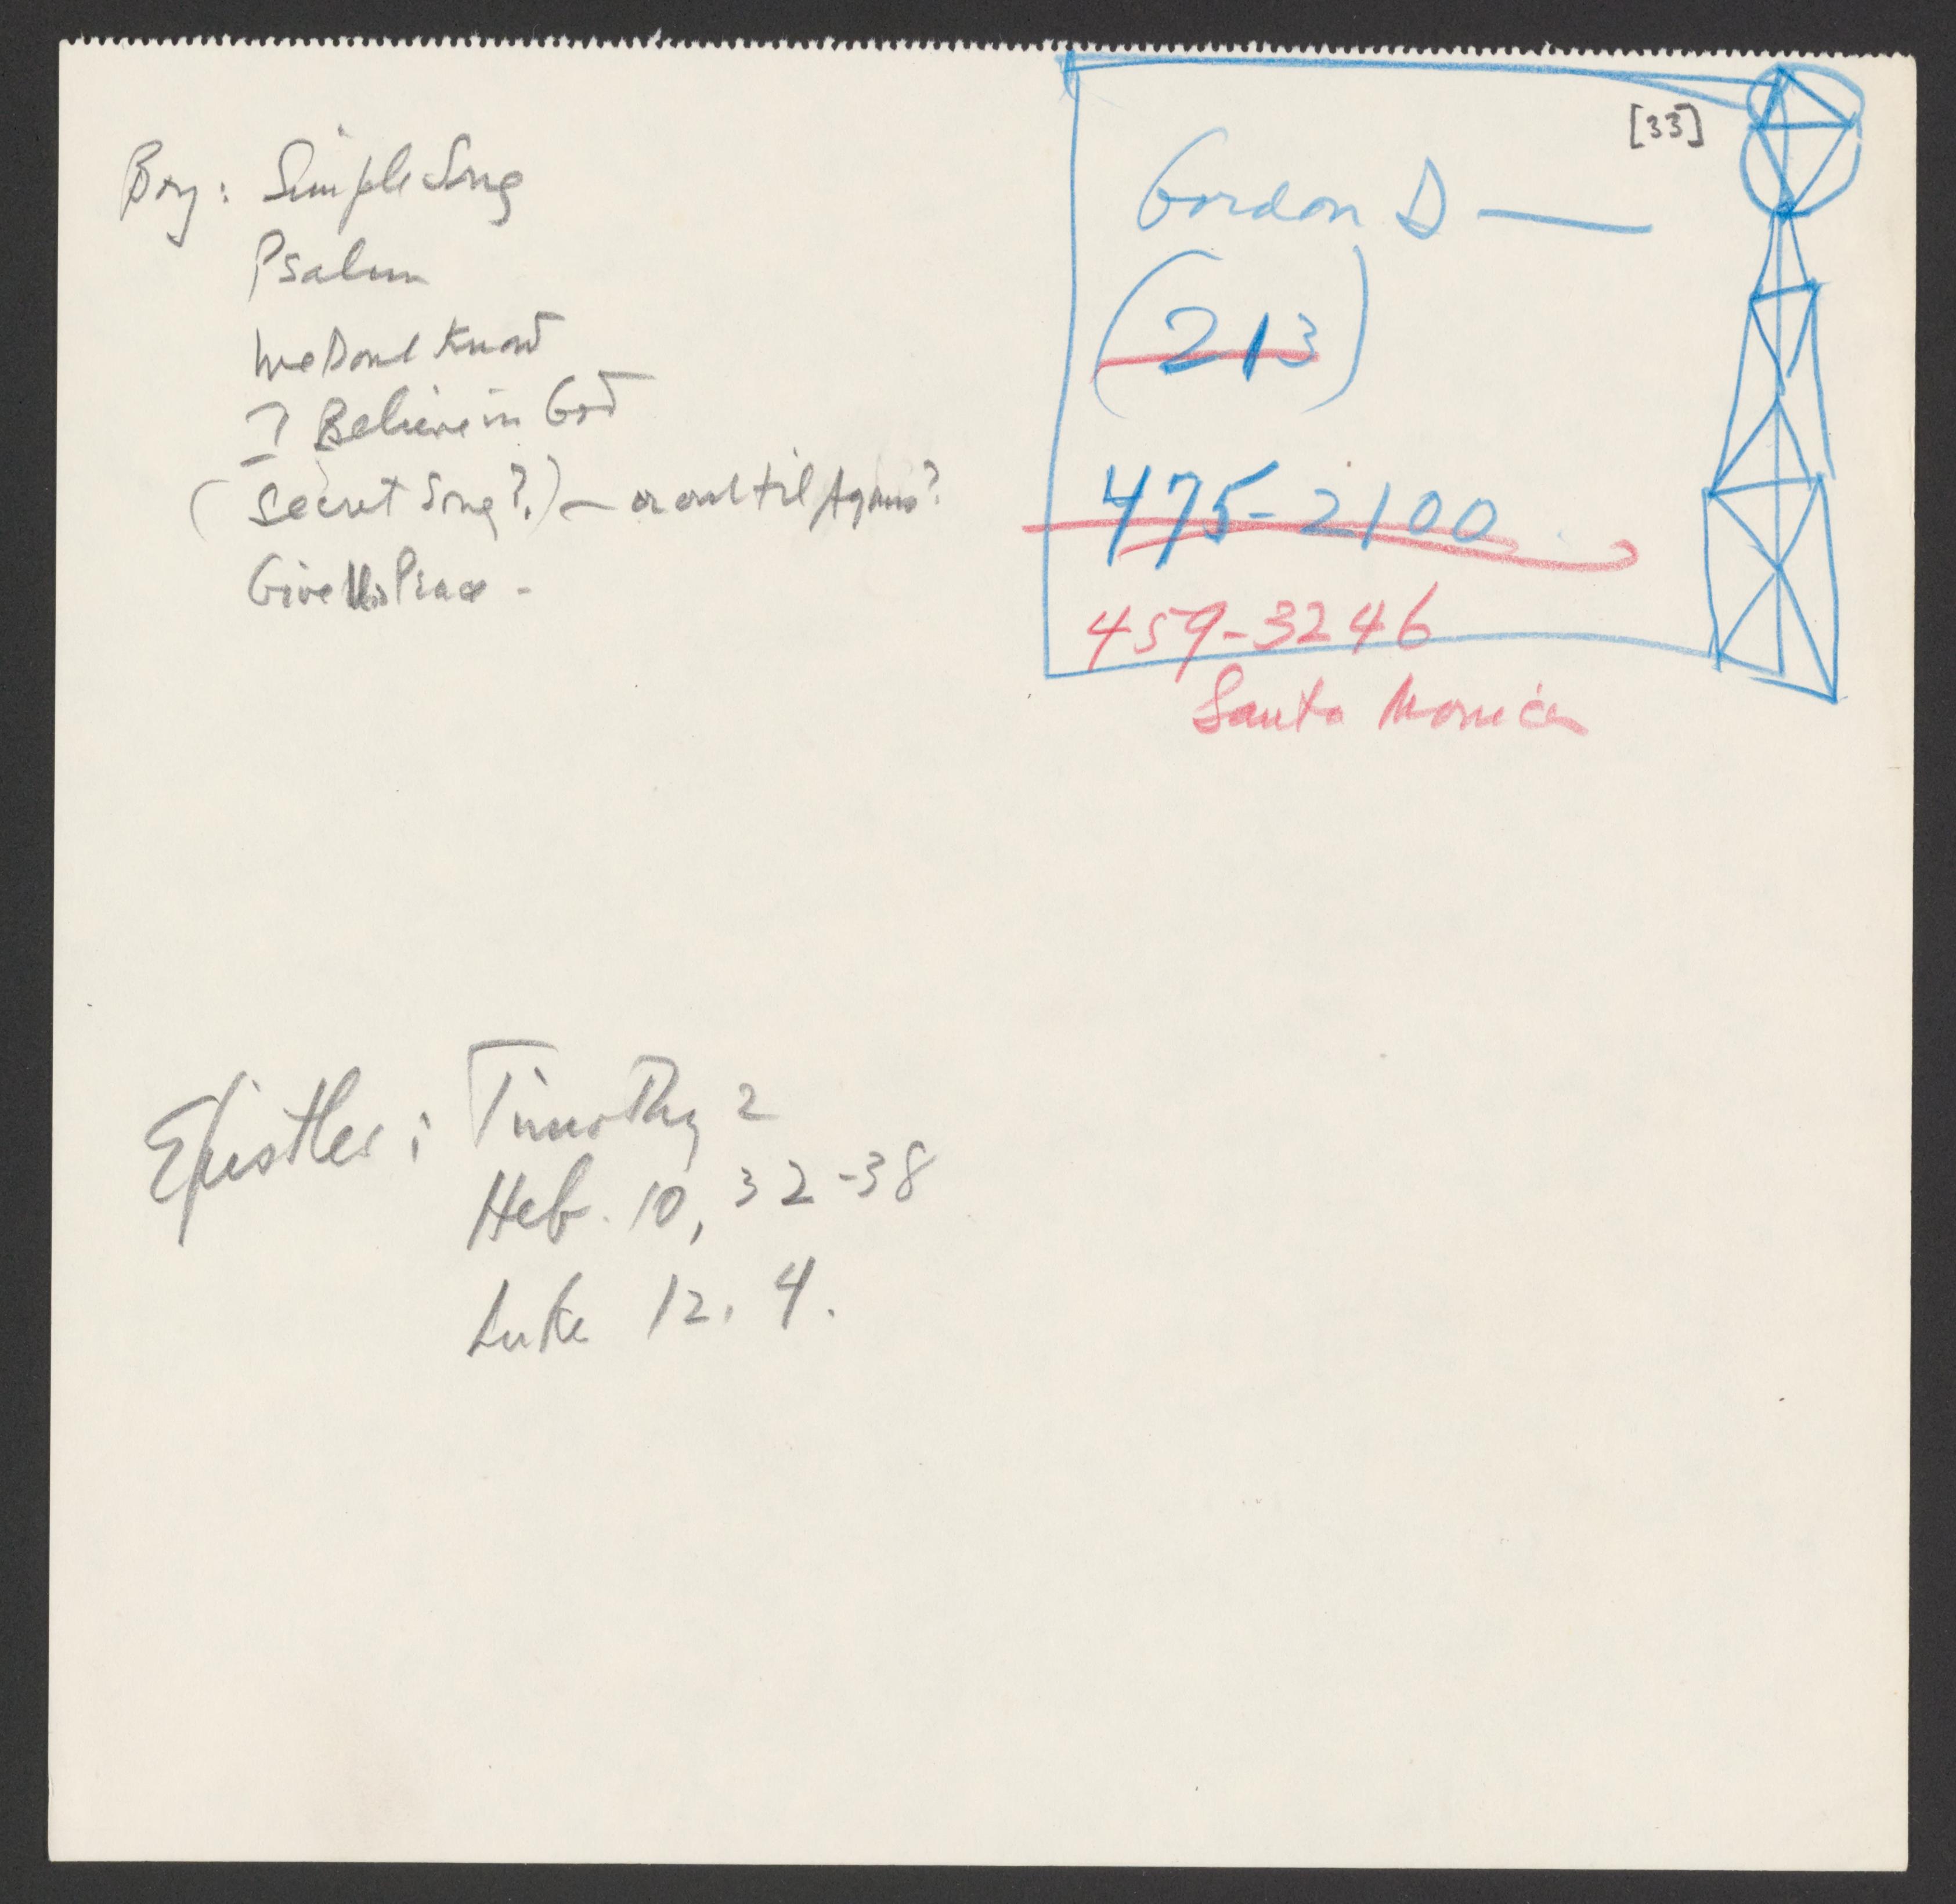 Boy: Simple Song
Psalm
We Don't Know
I Believe in God
(Secret Song?) — or not til Agnus?
Give Us Peace -
[33]
Gordon D —
(213)
475-2100
459-3246
Santa Monica
Epistles: Timothy 2
Heb. 10, 32-38
Luke 12. 4.